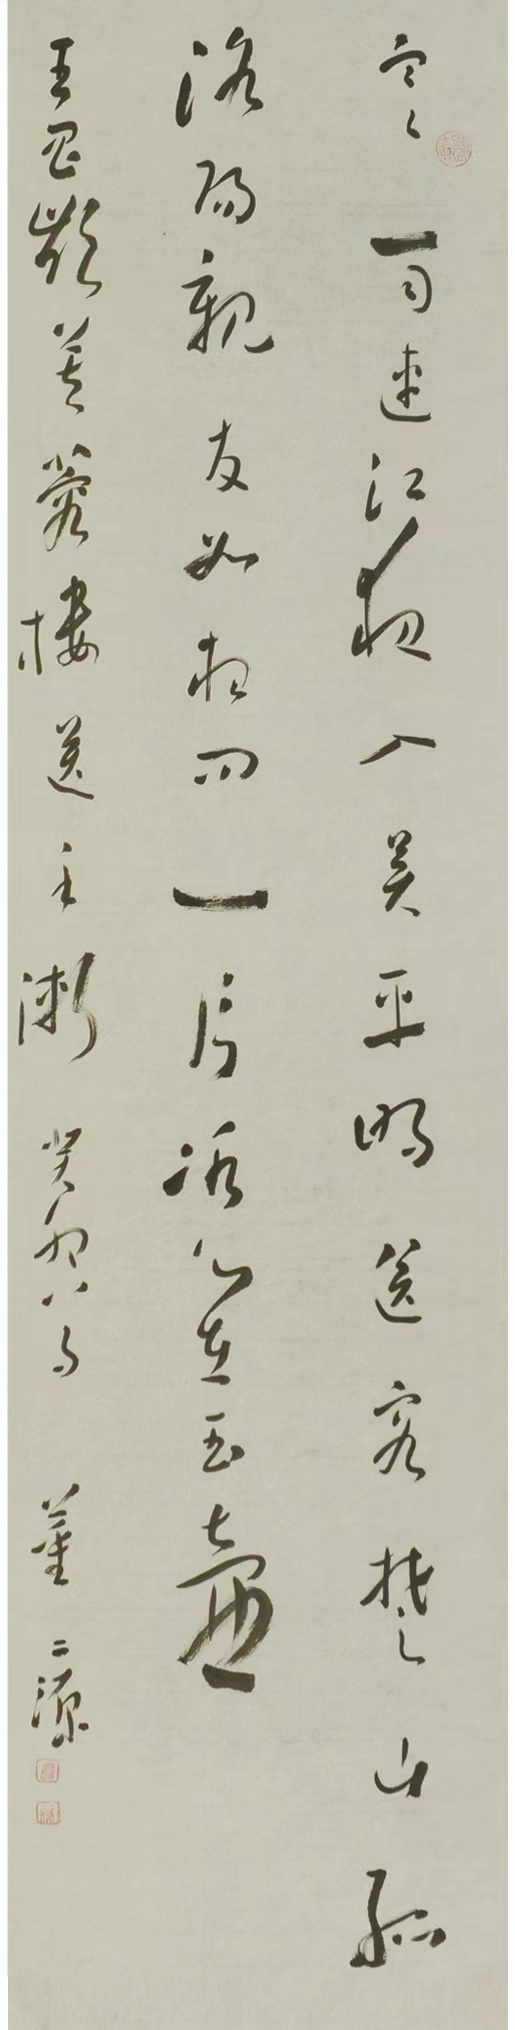 寒雨連江夜入吳平明送客楚山孤
洛陽親友如相問一片冰心在玉壺
王昌齡芙蓉樓送辛漸 癸卯八月 董二源